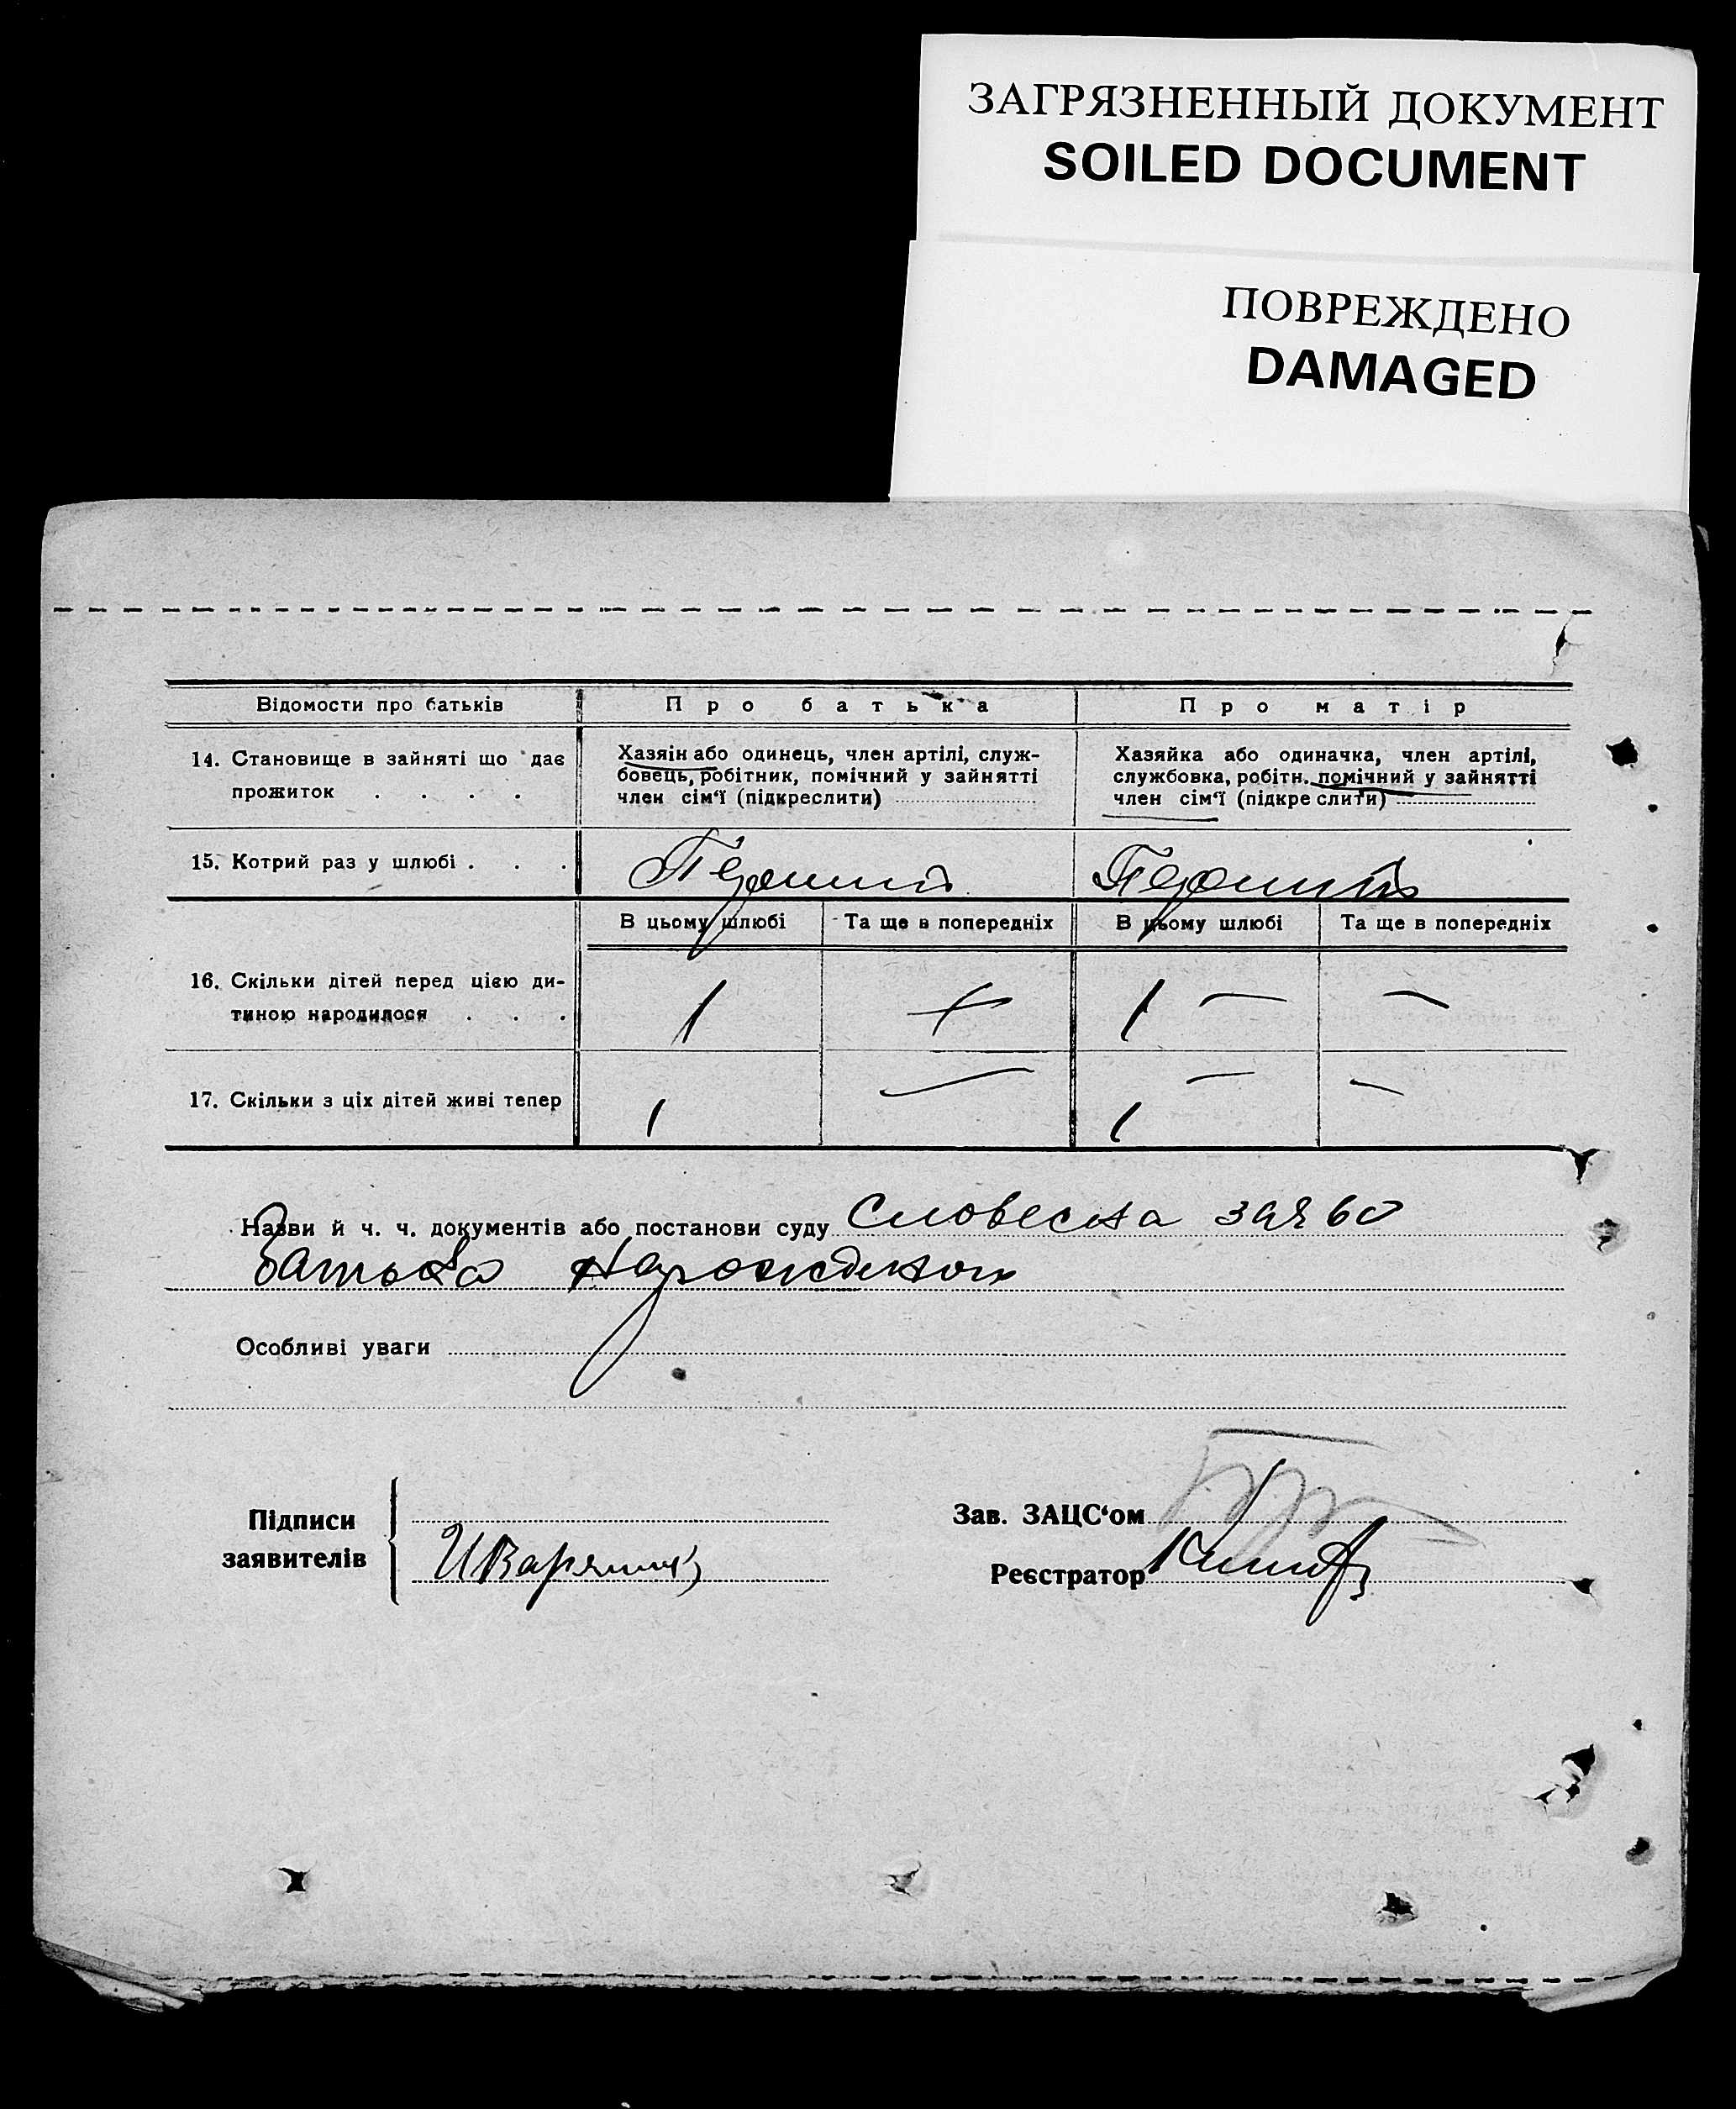 ЗАГРЯЗНЕННЫЙ ДОКУМЕНТ
SOILED DOCUMENT
ПОВРЕЖДЕНО
DAMAGED
Відомости про батьків Про батька Про матір
14. Становище в зайняті що дає прожиток . . . .
Хазяін або одинець, член артілі, служ-
бовець, робітник, помічний у зайнятті
член сім'ї (підкреслити)
Хазяйка або одиначка, член артілі,
службовка, робітн. помічний у зайнятті
член сім'ї (підкреслити)
15. Котрий раз у шлюбі . . . Перший Перший
В цьому шлюбі Та ще в попередніх В цьому шлюбі Та ще в попередніх
16. Скільки дітей перед цією ди-
тиною народилося . . . 1 — 1 — —
17. Скільки з ціх дітей живі тепер 1 — 1 — —
Назви й ч. ч. документів або постанови суду Словесна
батька
Особливі уваги
Підписи
заявителів
Зав. ЗАЦС'ом
Реєстратор